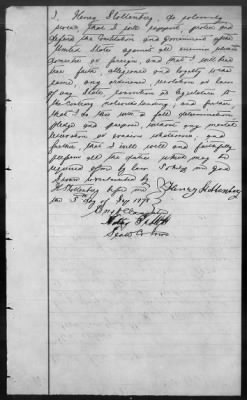 I, Henry Stoltenberg, do solemnly
swear, that I will support, protect and
defend the Constitution and Government of the
United States against all enemies whether
domestic or foreign, and that I will bear
true faith, allegiance and loyalty to the
same, any ordinance, resolution or law
of any State, convention or legislature to
the contrary notwithstanding; and further
that I do this with a full determination,
pledge and purpose, without any mental
reservation or evasion whatsoever; and
further, that I will well and faithfully
perform all the duties which may be
required of me by law. So help me God
Sworn &
H. Stoltenberg before me
the 3rd day of 1878
Henry Stoltenberg
Notary Public
Scott Co Iowa